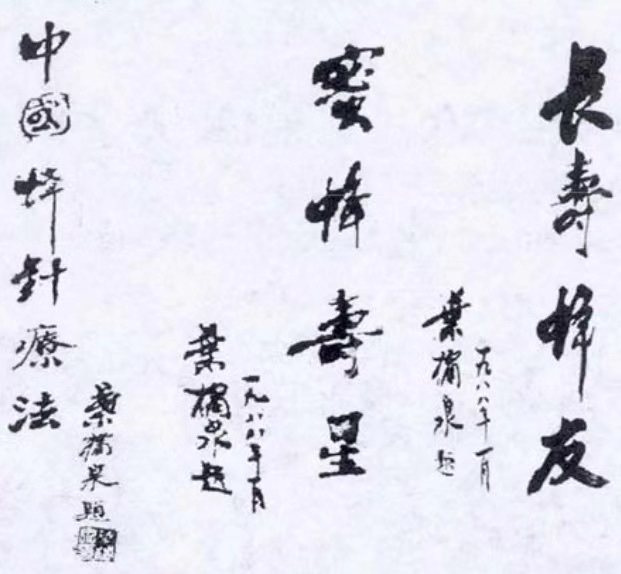 長壽蜂友
一九八八年一月
葉橘泉題
蜜蜂壽星
一九八八年一月
葉橘泉題
中國蜂針療法
葉橘泉題